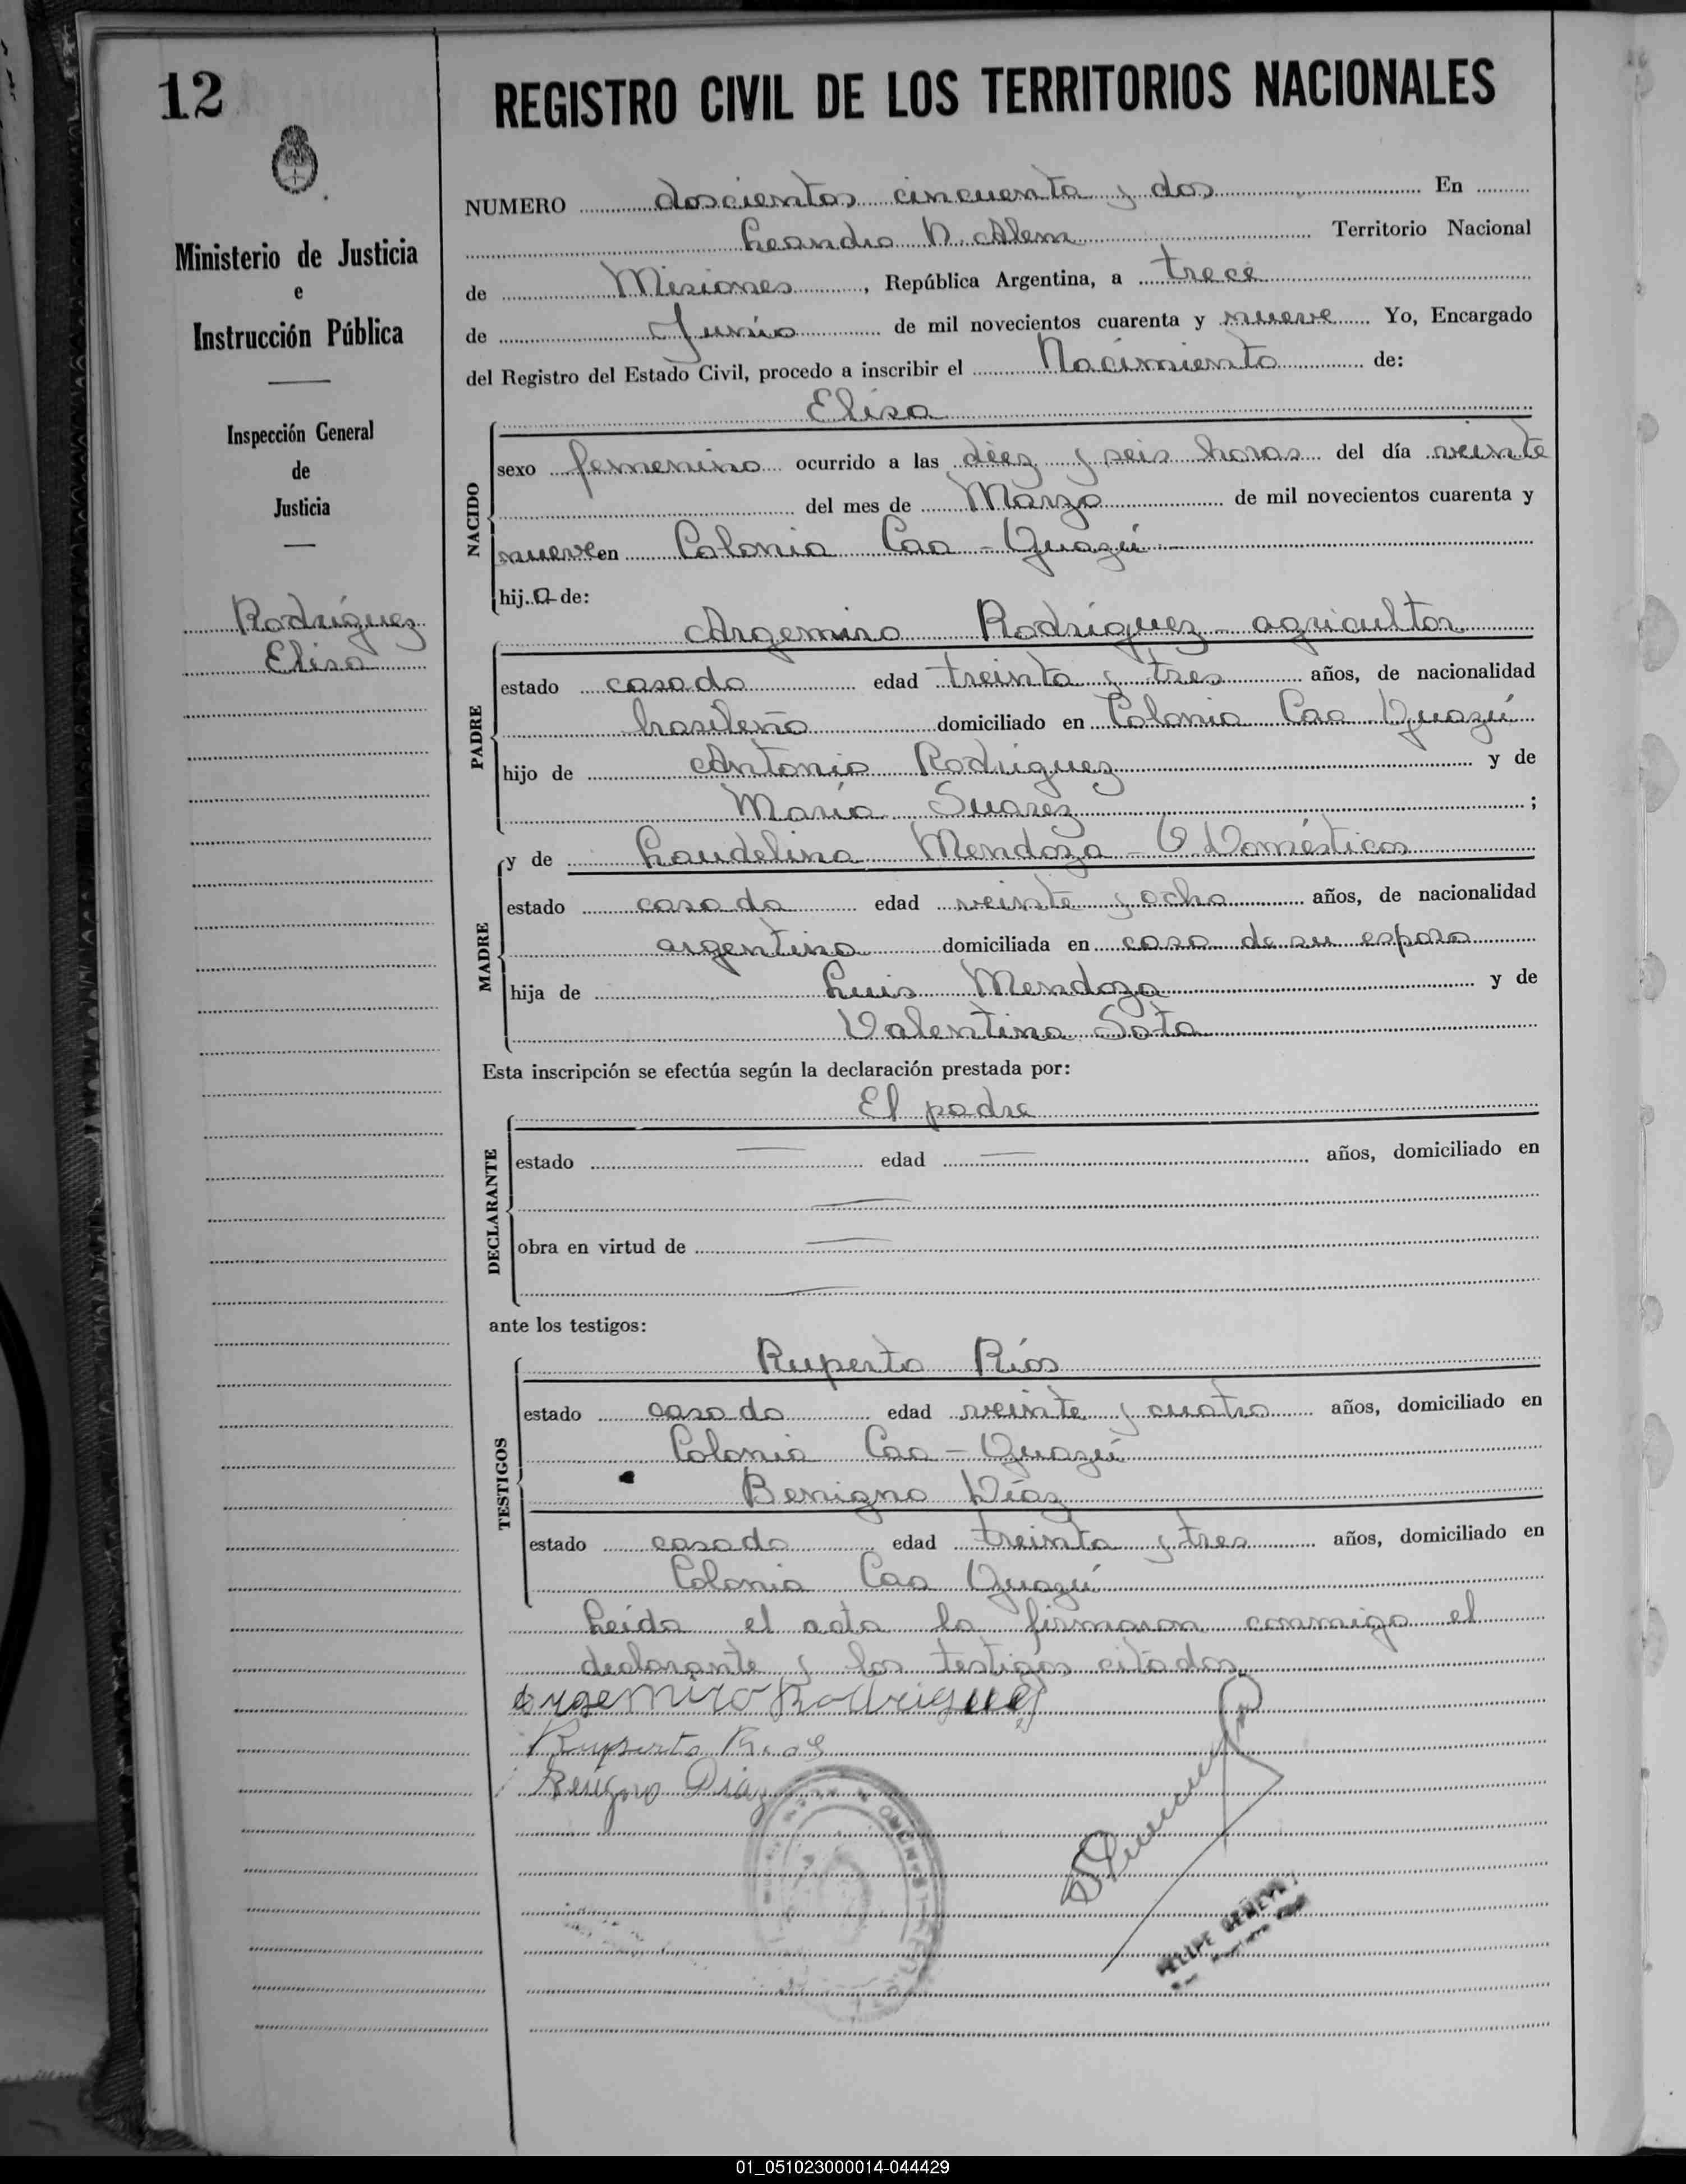 12
REGISTRO CIVIL DE LOS TERRITORIOS NACIONALES
Ministerio de Justicia
e
Instrucción Pública
Inspección General
de
Justicia
Rodríguez
Elisa
NUMERO doscientos cincuenta y dos En
Leandro N. Alem Territorio Nacional
de Misiones, República Argentina, a trece
de Junio de mil novecientos cuarenta y nueve Yo, Encargado
del Registro del Estado Civil, procedo a inscribir el Nacimiento de:
NACIDO
Elisa
sexo femenino ocurrido a las diez y seis horas del día veinte
del mes de Marzo de mil novecientos cuarenta y
nueve en Colonia Caa-Guazú
hija de:
PADRE
Argemiro Rodríguez - agricultor
estado casado edad treinta y tres años, de nacionalidad
brasileño domiciliado en Colonia Caa Guazú
hijo de Antonio Rodríguez y de
María Suarez ;
MADRE
y de Laudelina Mendoza - Q. Domésticos
estado casada edad veinte y ocho años, de nacionalidad
argentina domiciliada en casa de su esposo
hija de Luis Mendoza y de
Valentina Soto
Esta inscripción se efectúa según la declaración prestada por:
DECLARANTE
El padre
estado — edad — años, domiciliado en
obra en virtud de —
ante los testigos:
TESTIGOS
Ruperto Ríos
estado casado edad veinte y cuatro años, domiciliado en
Colonia Caa-Guazú
Benigno Díaz
estado casado edad treinta y tres años, domiciliado en
Colonia Caa Guazú
Leída el acta la firmaron conmigo el
declarante y los testigos citados.
Argemiro Rodriguez
Ruperto Rios
Benigno Diaz
FELIPE
01_051023000014-044429